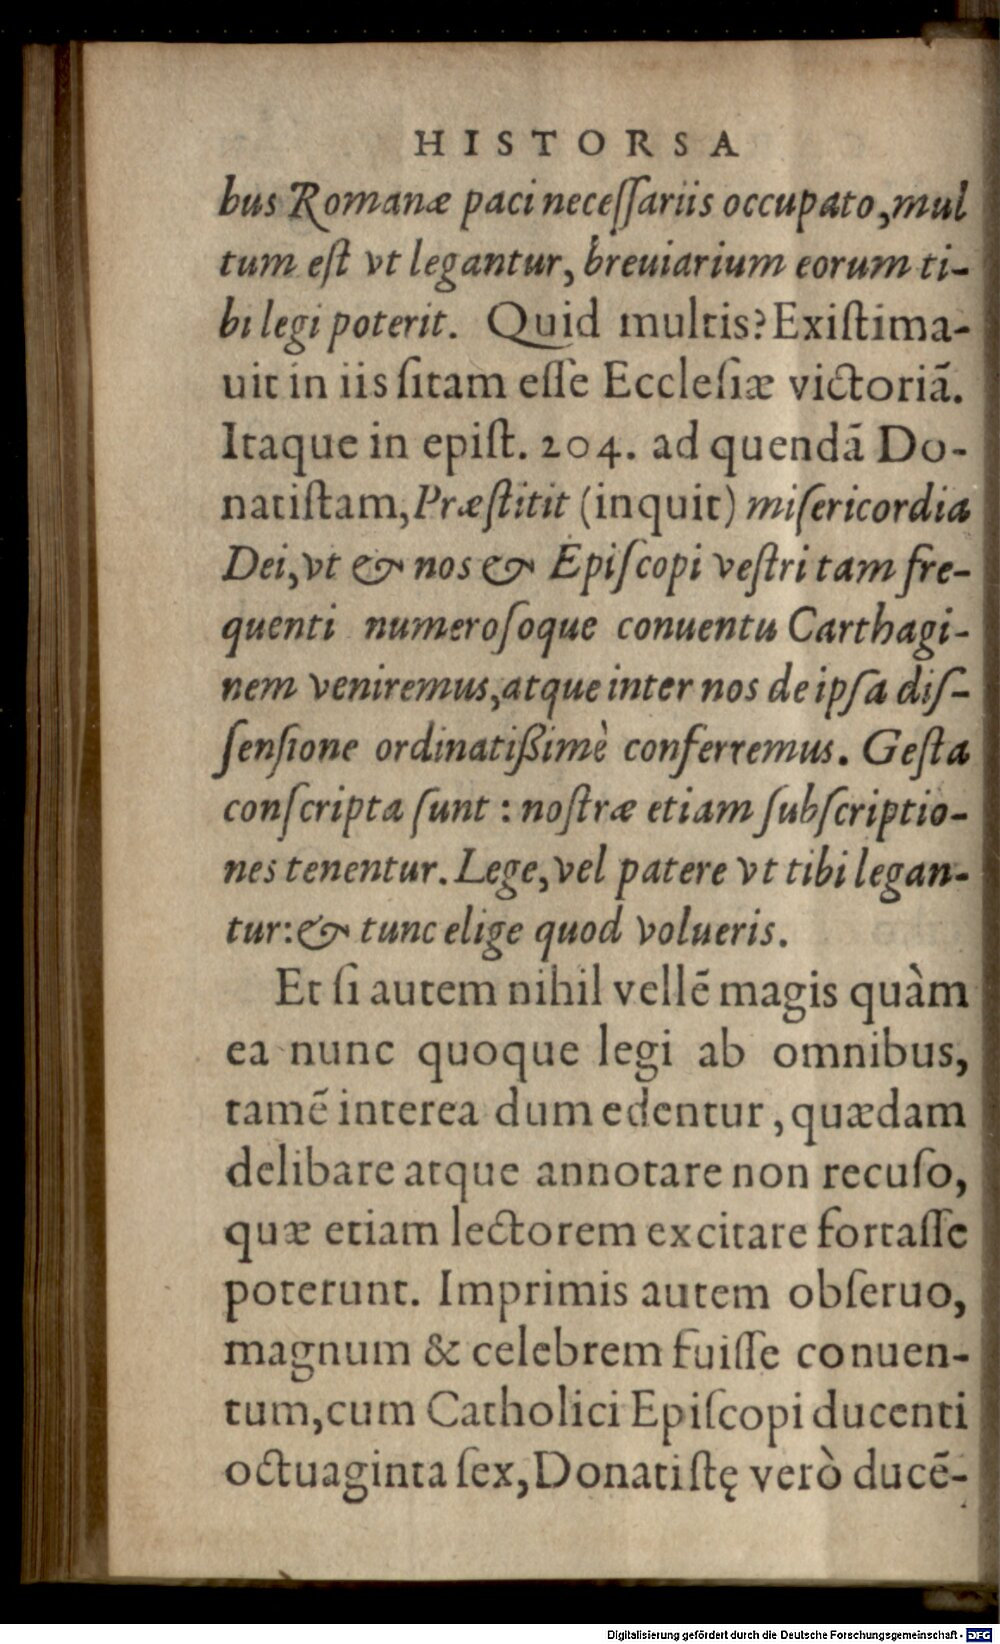 HISTORSA
bus Romanæ paci neceſſariis occupato, mul
tum eſt vt legantur, breuiarium eorum ti-
bi legi poterit. Quid multis? Exiſtima-
uit in iis ſitam eſſe Eccleſiæ victoriã.
Itaque in epiſt. 204. ad quendã Do-
natiſtam, Præſtitit (inquit) miſericordia
Dei, vt & nos & Epiſcopi veſtri tam fre-
quenti numeroſoque conuentu Carthagi-
nem veniremus, atque inter nos de ipſa diſ-
ſenſione ordinatißimè conferremus. Geſta
conſcripta ſunt : noſtræ etiam ſubſcriptio-
nes tenentur. Lege, vel patere vt tibi legan-
tur: & tunc elige quod volueris.
Et ſi autem nihil vellẽ magis quàm
ea nunc quoque legi ab omnibus,
tamẽ interea dum edentur, quædam
delibare atque annotare non recuſo,
quæ etiam lectorem excitare fortaſſe
poterunt. Imprimis autem obſeruo,
magnum & celebrem fuiſſe conuen-
tum, cum Catholici Epiſcopi ducenti
octuaginta ſex, Donatiſtę verò ducẽ-
Digitalisierung gefördert durch die Deutsche Forschungsgemeinschaft - DFG